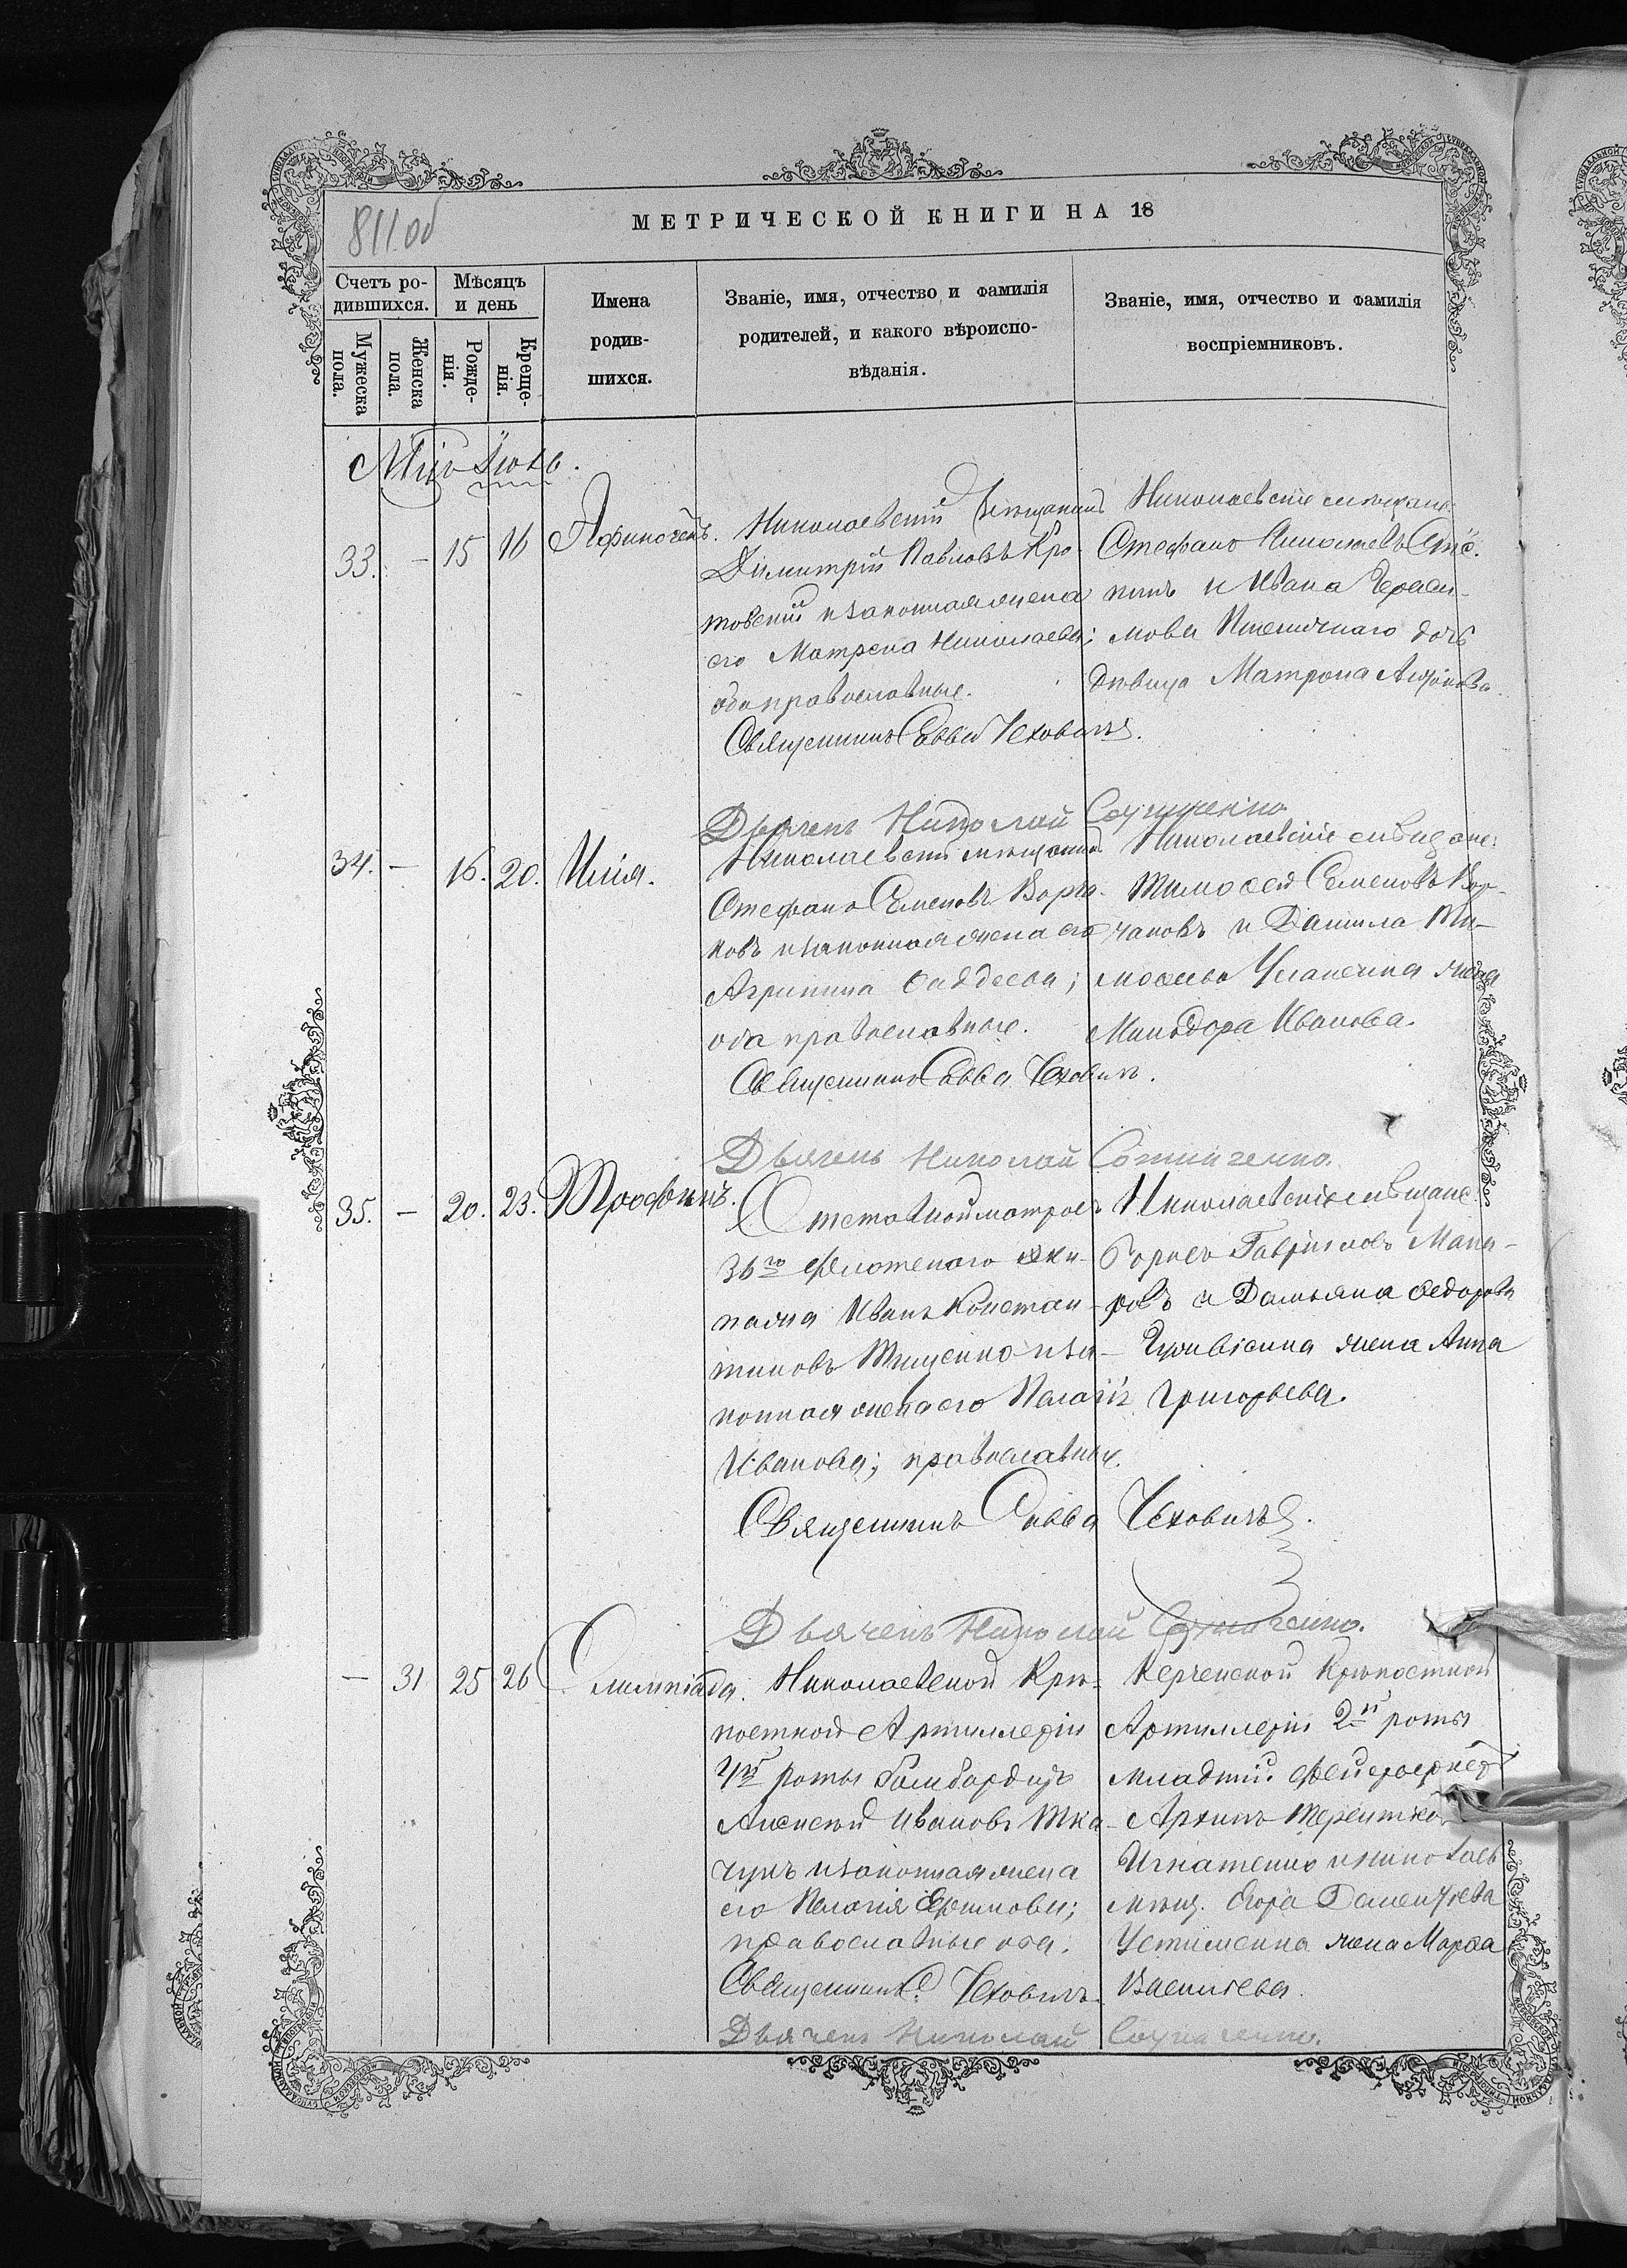 811об
МЕТРИЧЕСКОЙ КНИГИ НА 18
Счетъ ро-
дившихся.
Мѣсяцъ
и день
Имена
родив-
шихся.
Званіе, имя, отчество и фамилія
родителей, и какого вѣроиспо-
вѣданія.
Званіе, имя, отчество и фамилія
воспріемниковъ.
Мужеска
пола.
Женска
пола.
Рожде-
нія.
Креще-
нія.
Іюль.
33. - 15 16 Афиногенъ.
Николаевскій мѣщанинъ
Димитрій Павловъ Кро-
товскій и законная жена
его Матрена Николаева;
оба православные.
Священникъ Савва Чеховичъ.
Николаевскіе мѣщане:
Стефанъ Николаевъ
и Ивана Гераси-
мова Пшеничнаго дочь
дѣвица Матрона
Дьячекъ Николай
34. - 16. 20. Илія.
Николаевскій мѣщанинъ
Стефанъ Семеновъ
и законная жена его
Агрипина Фаддеева;
оба православные.
Священникъ Савва Чеховичъ.
Николаевскіе мѣщане:
Тимофей Семеновъ
и Данила Ти-
мофеева жена
Минодора Иванова.
Дьячекъ Николай
35. - 20. 23. Трофимъ.
Отставной матросъ
36го флотскаго эки-
пажа Иванъ Констан-
тиновъ Тищенко и за-
конная жена его Пелагія
Иванова; православные.
Священникъ Савва Чеховичъ.
Николаевскіе мѣщане:
Борисъ Гавриловъ Мака-
ровъ и Дамьяна Федорова
жена Анна
Григорьева.
Дьячекъ Николай
- 31 25 26 Олимпіада.
Николаевской Крѣ-
постной Артиллеріи
4й роты Бомбардиръ
Алексѣй Ивановъ Тка-
чукъ и законная жена
его Пелагія
православные оба.
Священникъ С. Чеховичъ.
Керченской Крѣпостной
Артиллеріи 2й роты
младшій фейерверкеръ
Архипъ
Игнатенко и николаев
мѣщ. Егора Дементьева
Устименка жена Марфа
Васильева.
Дьячекъ Николай